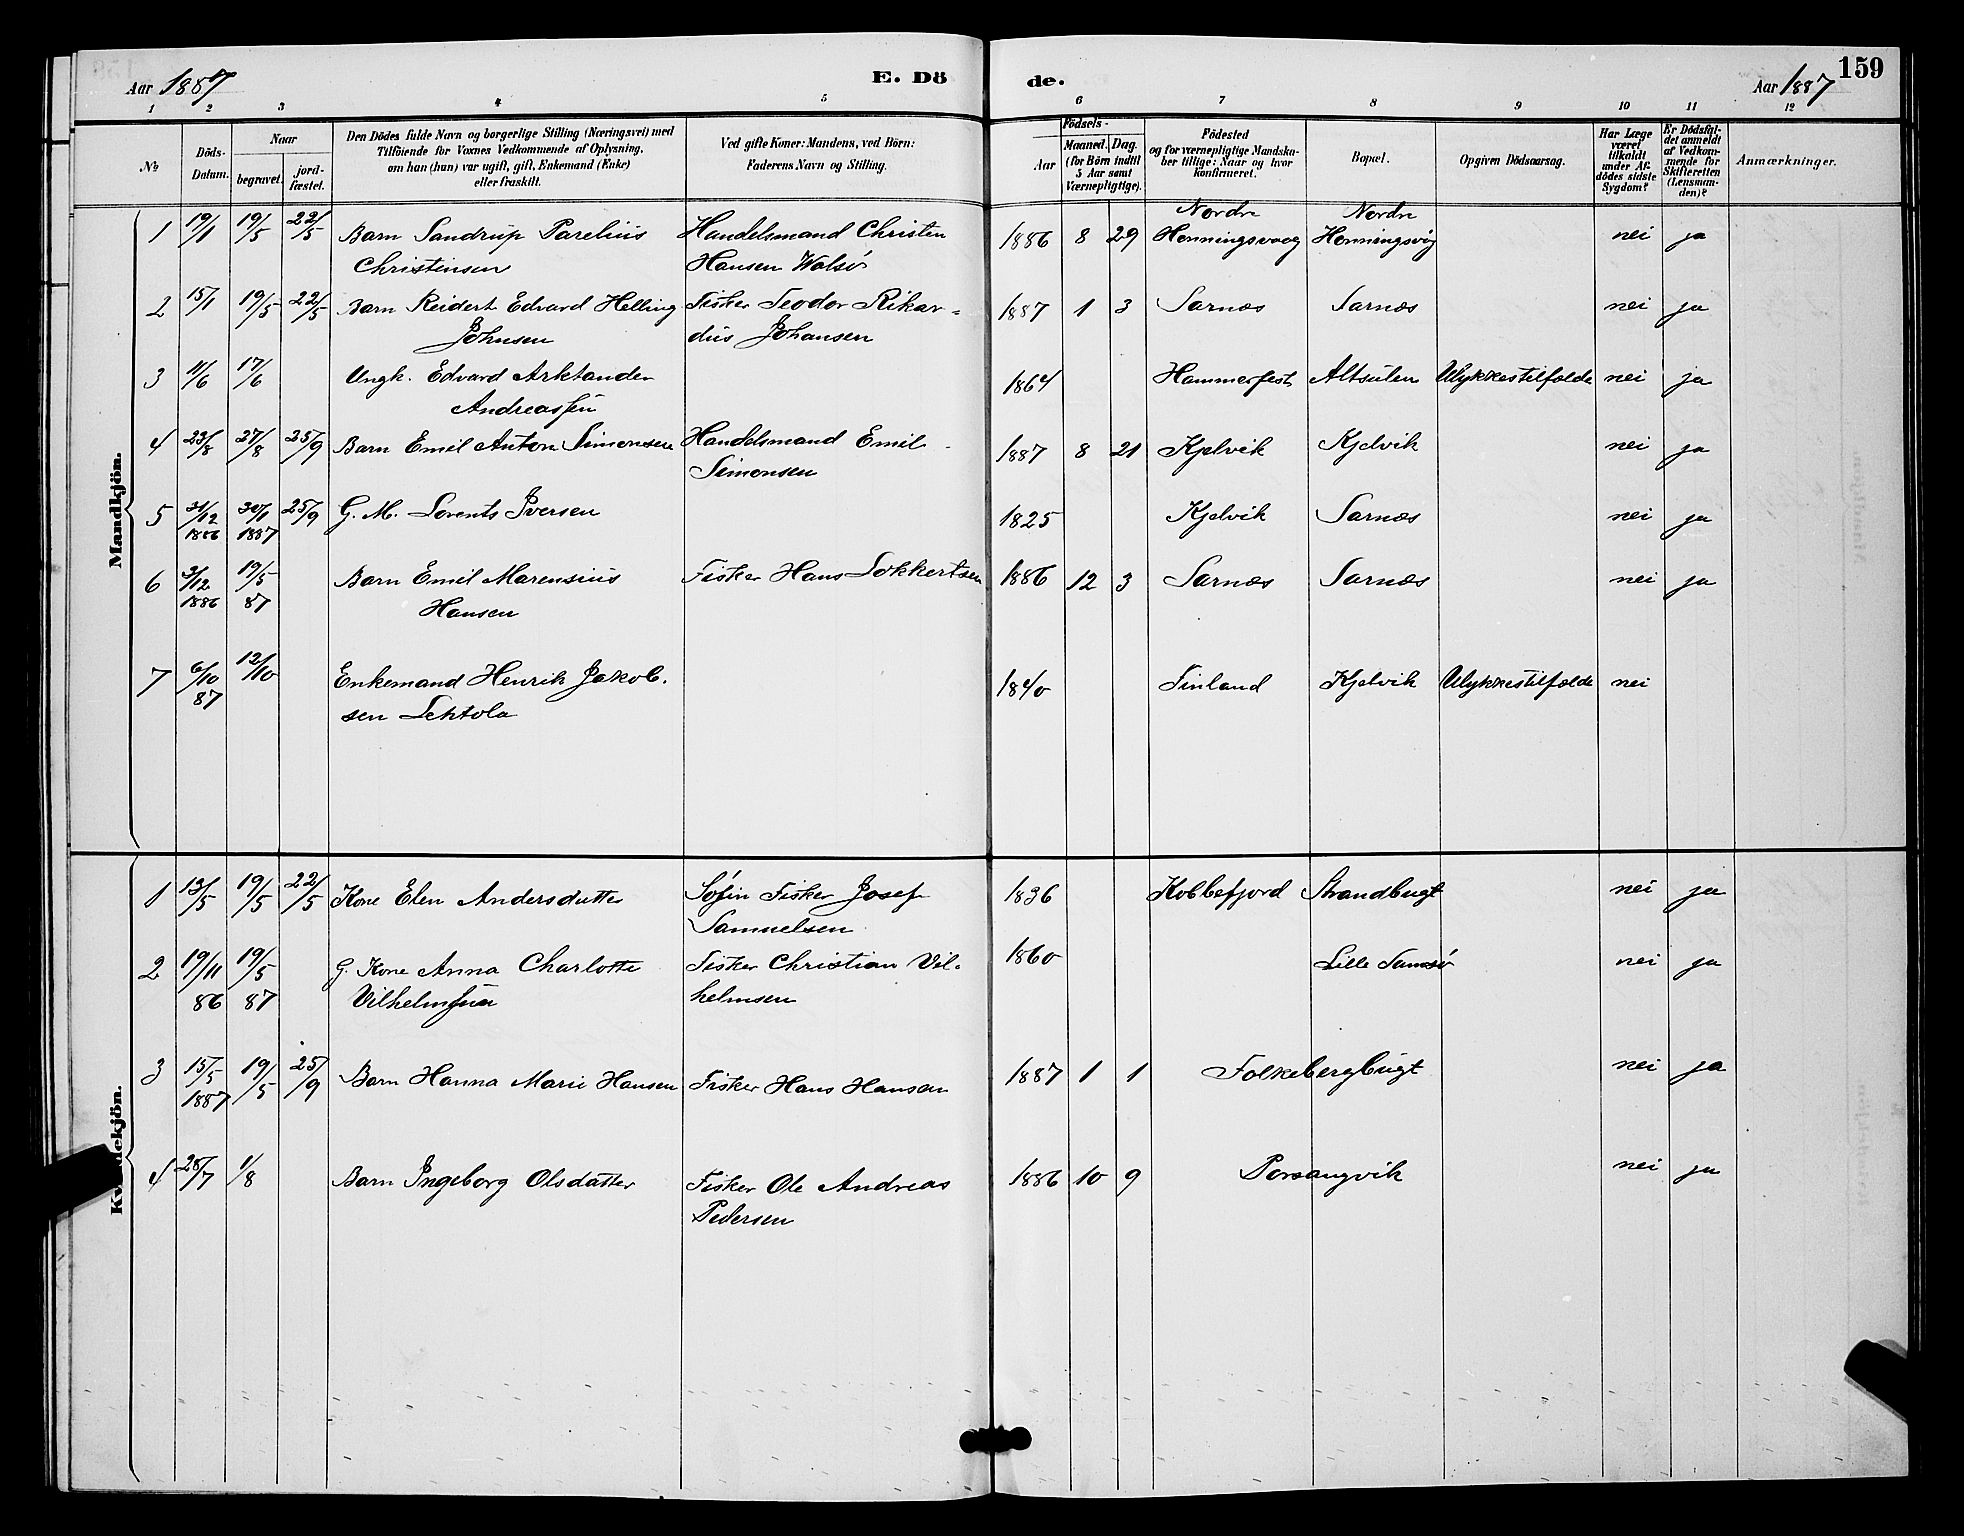 Aar 1887
E. Dö
de.
159
Aar 1887
1 2 3 4 5 6 7 8 9 10 11 12
No
Döds-
Datum.
Naar
begravet.
jord-
fæstet.
Den Dödes fulde Navn og borgerlige Stilling (Næringsvei) med
Tilföiende for Voxnes Vedkommende af Oplysning,
om han (hun) var ugift, gift, Enkemand (Enke)
eller fraskilt.
Ved gifte Koner: Mandens, ved Börn:
Faderens Navn og Stilling.
Födsels-
Aar
Maaned. Dag.
(for Börn indtil
5 Aar samt
Værnepligtige).
Födested
og for værnepligtige Mandska-
ber tillige: Naar og hvor
konfirmeret.
Bopæl.
Opgiven Dödsaarsag.
Har Læge
været
tilkaldt
under Af-
dödes sidste
Sygdom?
Er Dödsfal-
det anmeldt
af Vedkom-
mende for
Skifteretten
(Lensman-
den)?
Anmærkninger.
Mandkjön.
1 19/1 19/5 22/5 Barn Sandrup Parelius Handelsmand Christen 1886 8 29 Nordre Nordre nei ja
Christensen Hansen Walsö Honningsvaag Honningsvåg
2 15/1 19/5 22/5 Barn Reidert Edvard Helling Fisker Teodor Rikar- 1887 1 3 Sarnæs Sarnæs nei ja
Johnsen dius Johansen
3 11/6 17/6 Ungk. Edvard Arktander 1864 Hammerfest Altsulen Ulykkestilfælde nei ja
Andreassen
4 23/8 27/8 25/9 Barn Emil Anton Simonsen Handelsmand Emil 1887 8 21 Kjelvik Kjelvik nei ja
Simonsen
5 31/12 30/1 25/9 G. M. Lorents Iversen 1825 Kjelvik Sarnæs nei ja
1886 1887
6 3/12 19/5 Barn Emil Marensius Fisker Hans Lokkertsen 1886 12 3 Sarnæs Sarnæs nei ja
1886 87 Hansen
7 6/10 12/10 Enkemand Henrik Jakob- 1840 Finland Kjelvik Ulykkestilfælde nei
87 sen Lehtola
Kvindekjön.
1 13/5 19/5 22/5 Kone Elen Andersdatter Söfin Fisker Josef 1836 Kobbefjord Strandbugt nei ja
Samuelsen
2 19/11 19/5 G. Kone Anna Charlotte Fisker Christian Vil- 1860 Lille Tamsö nei ja
86 87 Vilhelmsen helmsen
3 15/5 19/5 25/9 Barn Hanna Marie Hansen Fisker Hans Hansen 1887 1 1 Folkebergbugt nei ja
1887
4 28/7 1/8 Barn Ingeborg Olsdatter Fisker Ole Andreas 1886 10 9 Porsangvik nei ja
Pedersen